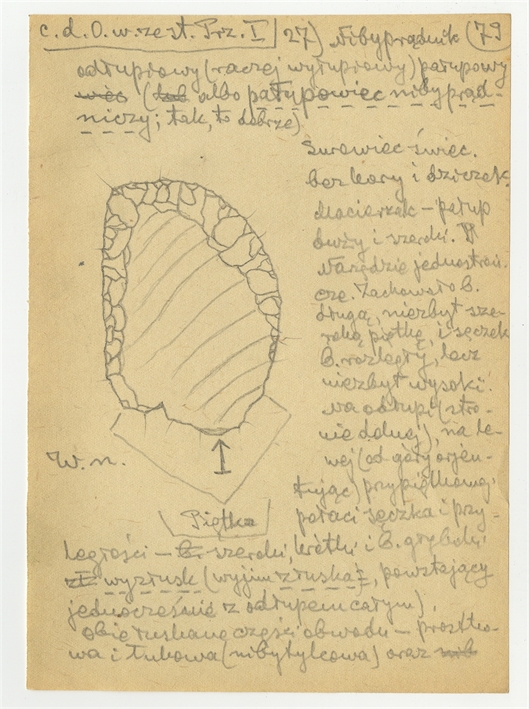 c. d. O. w. zest. Prz. I 27) Nibyprądnik (79
odłupiowy (raczej wyłupiowy) połupowy
więc (lub albo pałupowiec nibyprąd-
niczy; tak, to dobrze).
Surowiec świec.
bez kory i dziczek.
Macierzak – połup
duży i szeroki.
Narzędzie jednostron.
cze. Zachowało b.
długą, niezbyt sze-
roką piętkę, i sęczek
b. rozległy, lecz
niezbyt wysoki.
Na odłupi (stro-
nie dolnej), na le-
wej (od góry orjen-
tując) przypiętkowej
połaci sęczka i przy-
W. n.
Piętka
ległości – b. szeroki, krótki i b. głęboki
wyłusk (wyjim złuska, powstający
jednocześnie z odłupem całym).
Obie łuskane części obwodu – prostko-
wa i łukowa (nibytylcowa) oraz